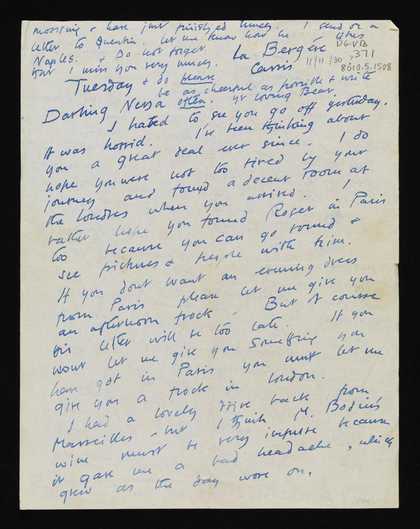 morning & have just finished lunch. I send on a
letter to Quentin. Let me know how he likes
Naples. & Do not forget
that I miss you very much.
La Bergère
Cassis
DGVB
,371
11/11/30
8010.5.1508
Tuesday & do please
be as cheerful as possible & write
often. Yr loving Bear.
Darling Nessa
I hated to see you go off yesterday.
It was horrid. I've been thinking about
you a great deal ever since. I do
hope you were not too tired by your
journey and found a decent room at
the Londres when you arrived. I
rather hope you found Roger in Paris
too because you can go round &
see pictures & people with him.
If you dont want an evening dress
from Paris please let me give you
an afternoon frock. But of course
this letter will be too late. If you
wont let me give you something you
have got in Paris you must let me
give you a frock in London.
I had a lovely drive back from
Marseilles - but I think M. Bodin's
wine must be very impure because
it gave me a bad headache, which
grew as the day wore on.